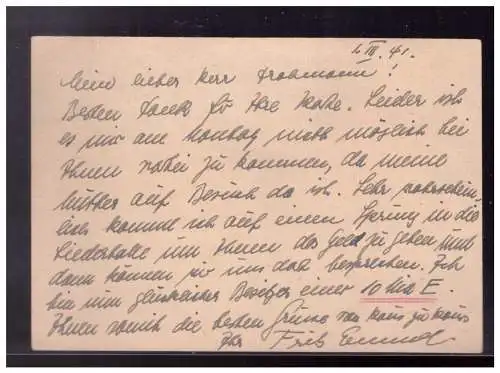 1. III. 41.
Mein lieber Herr Trohmann!
Besten Dank für Ihre Karte. Leider ist
es mir am Montag nicht möglich bei
Ihnen vorbei zu kommen, da meine
Mutter auf Besuch da ist. Sehr wahrschein-
lich komme ich auf einen Sprung in die
Liederhalle um Ihnen das Geld zu geben und
dann können wir uns dort besprechen. Ich
bin nun glücklicher Besitzer einer 10 E.
Ihnen somit die besten Grüsse von Haus zu Haus
Ihr Fritz